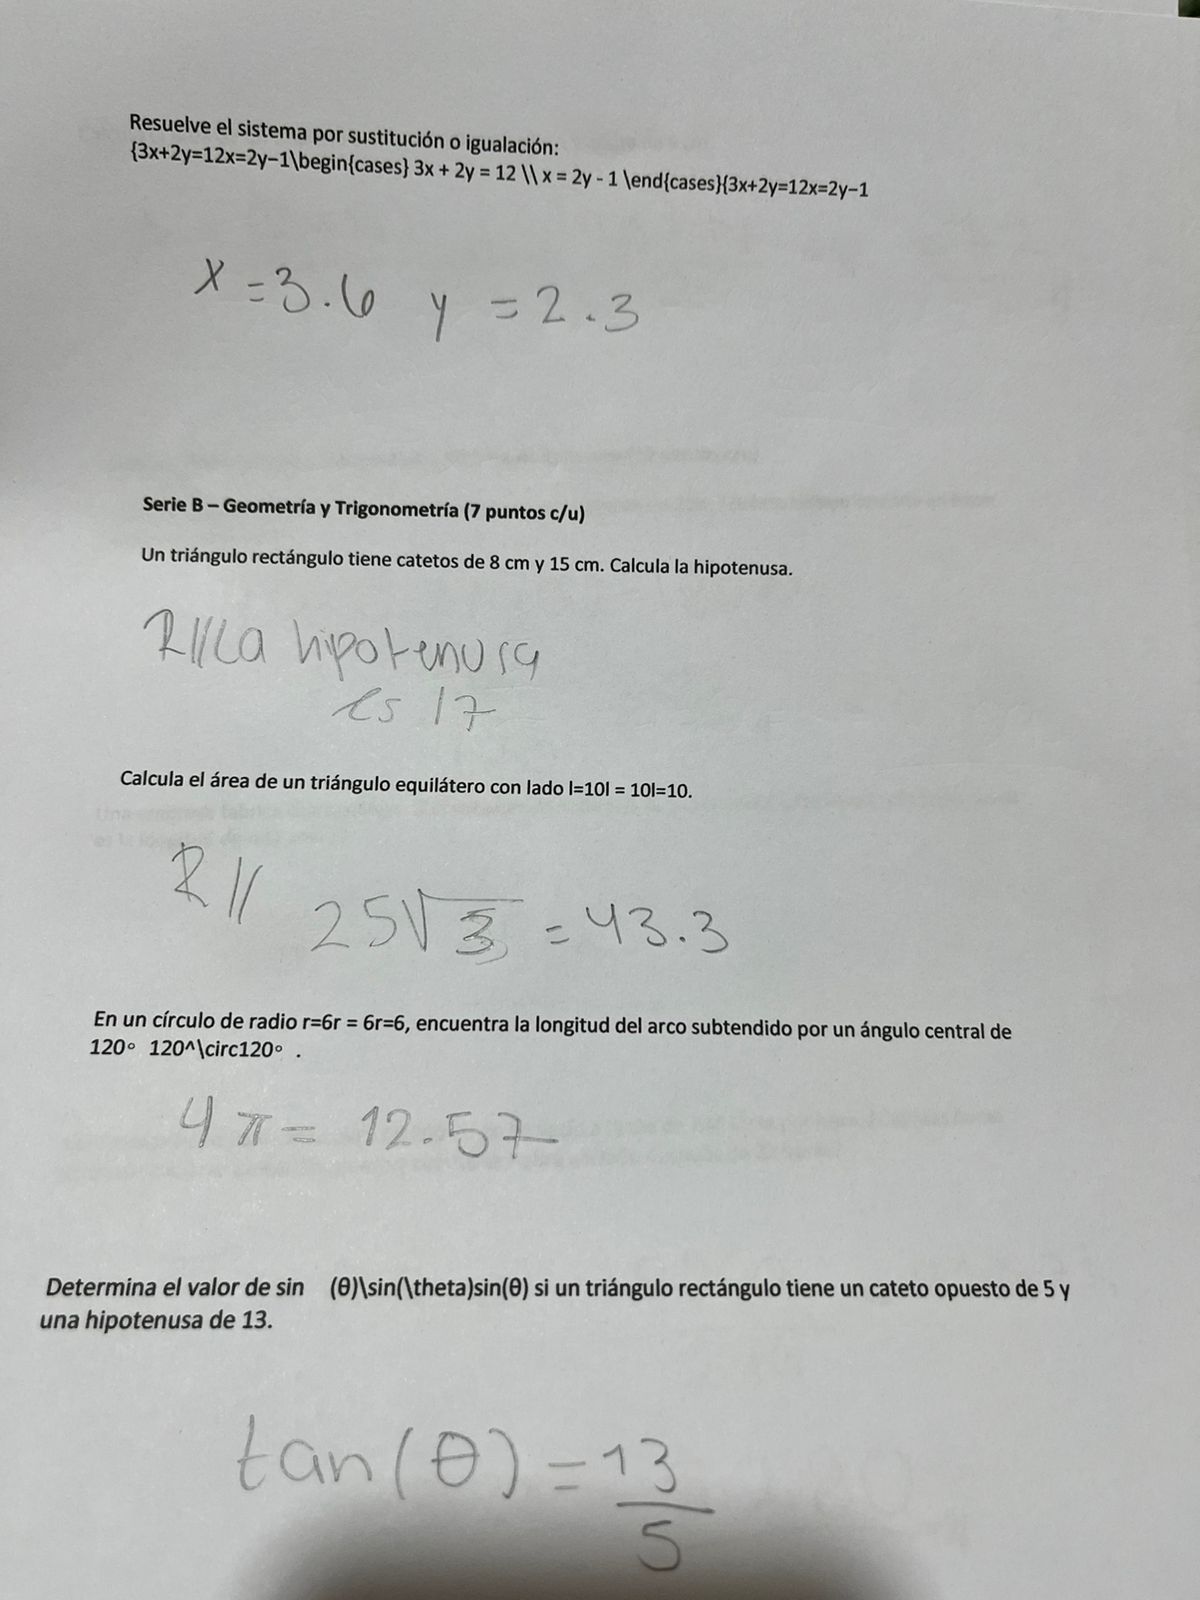 Resuelve el sistema por sustitución o igualación:
{3x+2y=12x=2y−1\begin{cases} 3x + 2y = 12 \\ x = 2y - 1 \end{cases}{3x+2y=12x=2y−1
x = 3.6 y = 2.3
Serie B – Geometría y Trigonometría (7 puntos c/u)
Un triángulo rectángulo tiene catetos de 8 cm y 15 cm. Calcula la hipotenusa.
R//La hipotenusa
es 17
Calcula el área de un triángulo equilátero con lado l=10l = 10l=10.
R//
25√3 = 43.3
En un círculo de radio r=6r = 6r=6, encuentra la longitud del arco subtendido por un ángulo central de
120∘ 120^\circ120∘ .
4π = 12.57
Determina el valor de sin (θ)\sin(\theta)sin(θ) si un triángulo rectángulo tiene un cateto opuesto de 5 y
una hipotenusa de 13.
tan(θ) = 13
5